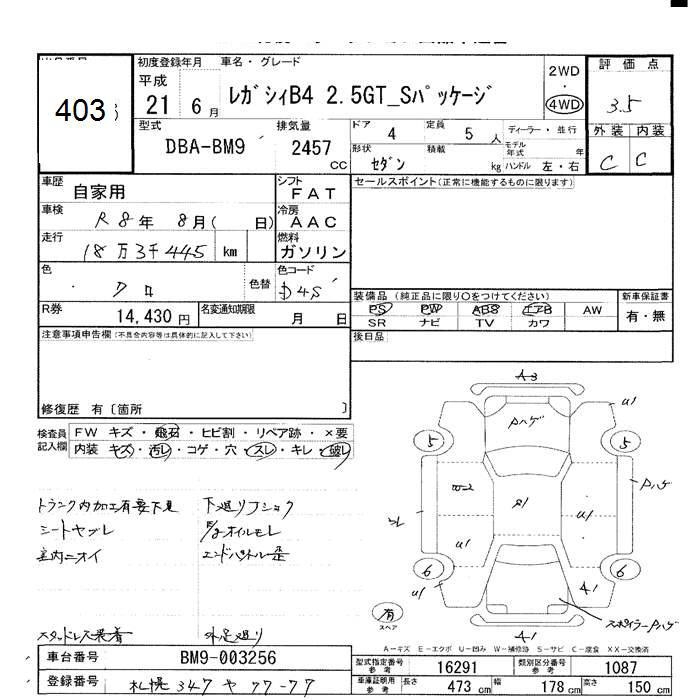 403
初度登録年月 車名・グレード
平成 21 6月 レガシィB4 2.5GT_Sパッケージ
2WD
4WD
評価点
3.5
外装 内装
C C
型式 排気量
DBA-BM9 2457 CC
ドア 4 定員 5 人 ディーラー・並行
形状 セダン 積載 kg モデル年式 年
ハンドル 左・右
車歴 自家用 シフト FAT
車検 R8年 8月( 日) 冷房 AAC
走行 18万3千445 km 燃料 ガソリン
色 クロ 色替 色コード D4S
R券 14,430円 名変通知期限 月 日
セールスポイント(正常に機能するものに限ります)
装備品 (純正品に限り○をつけてください) 新車保証書
PS PW ABS エアB AW 有・無
SR ナビ TV カワ
後日品
注意事項申告欄(不具合内容等は具体的に記入して下さい)
修復歴 有〔箇所 〕
検査員記入欄 FW キズ・飛石・ヒビ割・リペア跡・×要
内装 キズ・汚レ・コゲ・穴・スレ・キレ・破レ
トランク内加工有要下見 下廻りフショク
シートヤブレ E/gオイルモレ
室内ニオイ
スタッドレス装着 外足廻り
A3
U1
Pハゲ
5 5
Pハゲ
W-2
U1
U1
6 6
U1
A1
A1
スポイラーPハゲ
有
スペア
A-キズ E-エクボ U-凹み W-補修跡 S-サビ C-腐食 XX-交換済
車台番号 BM9-003256
登録番号 札幌 347 ヤ 77-77
型式指定番号 参考 16291 類別区分番号 参考 1087
車庫証明用 参考 長さ 473 cm 幅 178 cm 高さ 150 cm